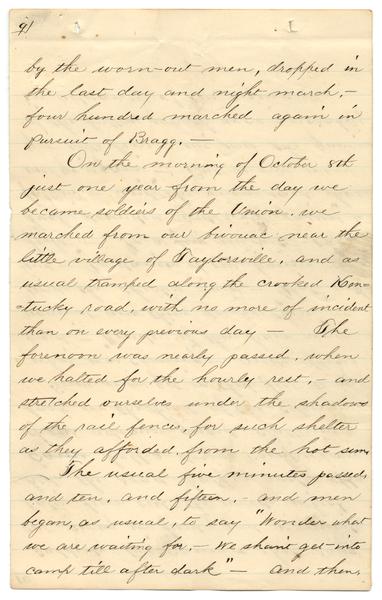 91
by the worn-out men, dropped in
the last day and night march,-
four hundred marched again in
pursuit of Bragg.-
On the morning of October 8th
just one year from the day we
became soldiers of the Union, we
marched from our bivouac near the
little village of Taylorsville, and as
usual tramped along the crooked Ken-
-tucky road, with no more of incident
than on every previous day - The
forenoon was nearly passed, when
we halted for the hourly rest,- and
stretched ourselves under the shadows
of the rail fences, for such shelter
as they afforded from the hot sun.
The usual five minutes passed,
and ten, and fifteen,- and men
began, as usual, to say "Wonder what
we are waiting for,- We shan't get into
camp till after dark"- and then,